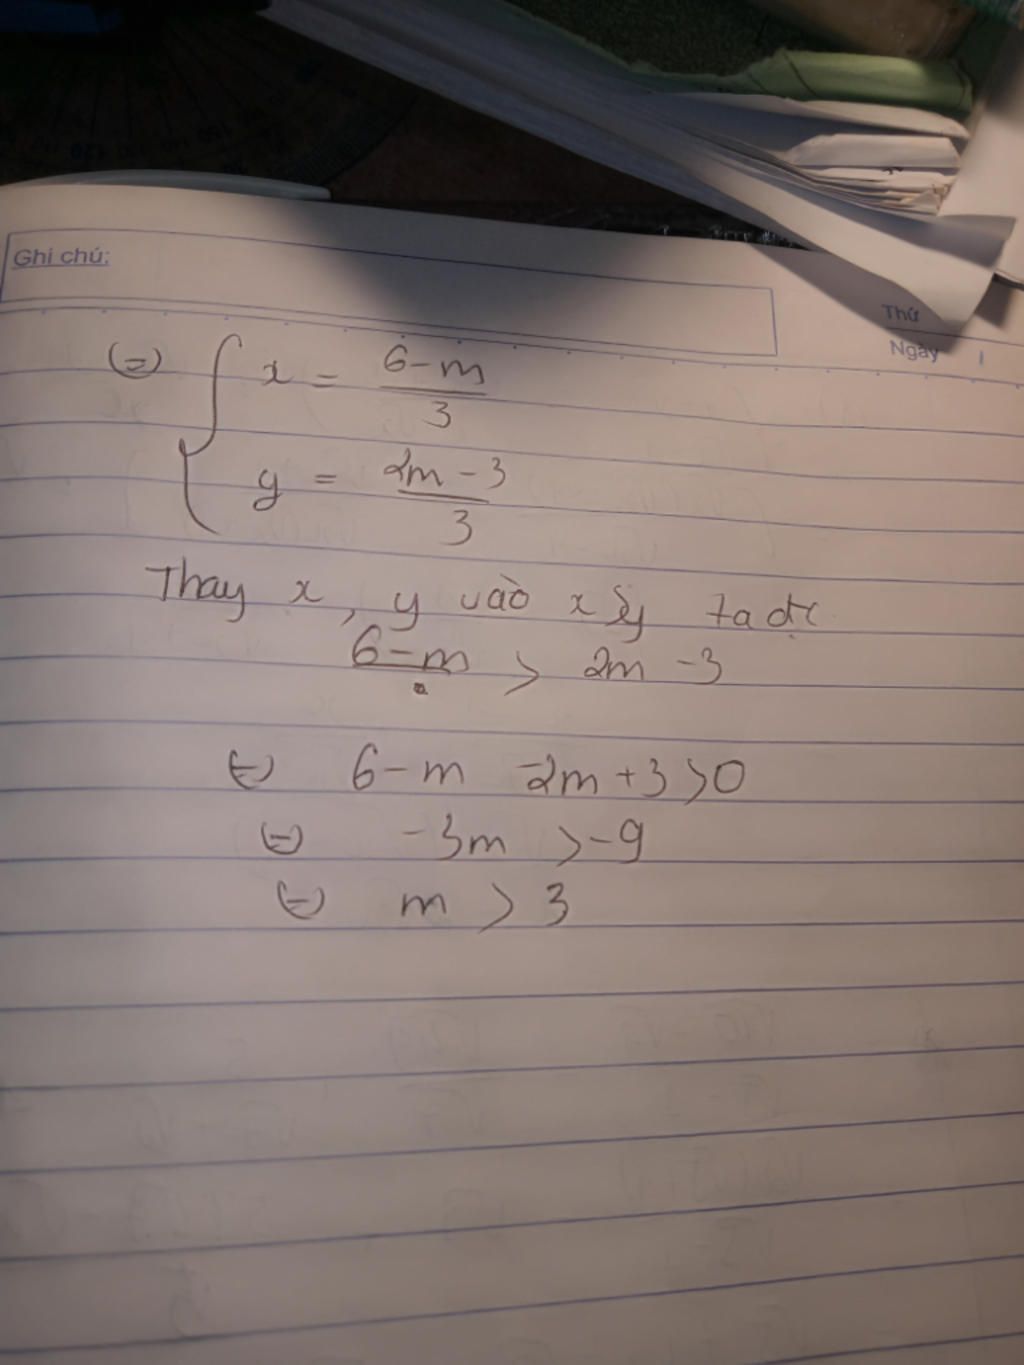 Ghi chú:
Thứ
Ngày
(=) { x = (6-m)/3
y = (2m-3)/3
Thay x, y vào x > y ta đc
6-m > 2m -3
(=) 6-m -2m+3 >0
(=) -3m >-9
(=) m > 3